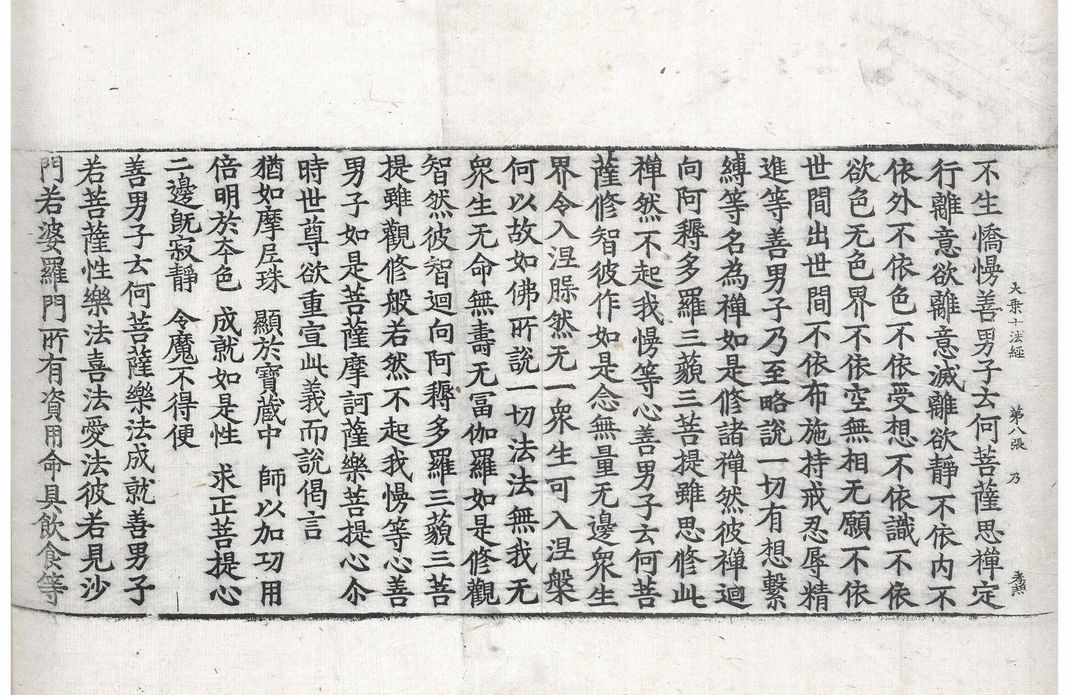 大乘十法經 第八張 乃
不生憍慢善男子去何菩薩思禪定
行離意欲離意滅離欲靜不依內不
依外不依色不依受想不依識不依
欲色无色界不依空無相无願不依
世間出世間不依布施持戒忍辱精
進等善男子乃至略說一切有想繫
縛等名為禪如是修諸禪然彼禪迴
向阿耨多羅三藐三菩提雖思修此
禪然不起我慢等心善男子去何菩
薩修智彼作如是念無量无邊衆生
界令入涅槃然无一衆生可入涅槃
何以故如佛所說一切法法無我无
衆生无命無壽无冨伽羅如是修觀
智然彼智迴向阿耨多羅三藐三菩
提雖觀修般若然不起我慢等心善
男子如是菩薩摩訶薩樂菩提心尒
時世尊欲重宣此義而說偈言
猶如摩尼珠 顯於寶藏中 師以加功用
倍明於夲色 成就如是性 求正菩提心
二邊旣寂靜 令魔不得便
善男子去何菩薩樂法成就善男子
若菩薩性樂法喜法愛法彼若見沙
門若婆羅門所有資用命具飲食等